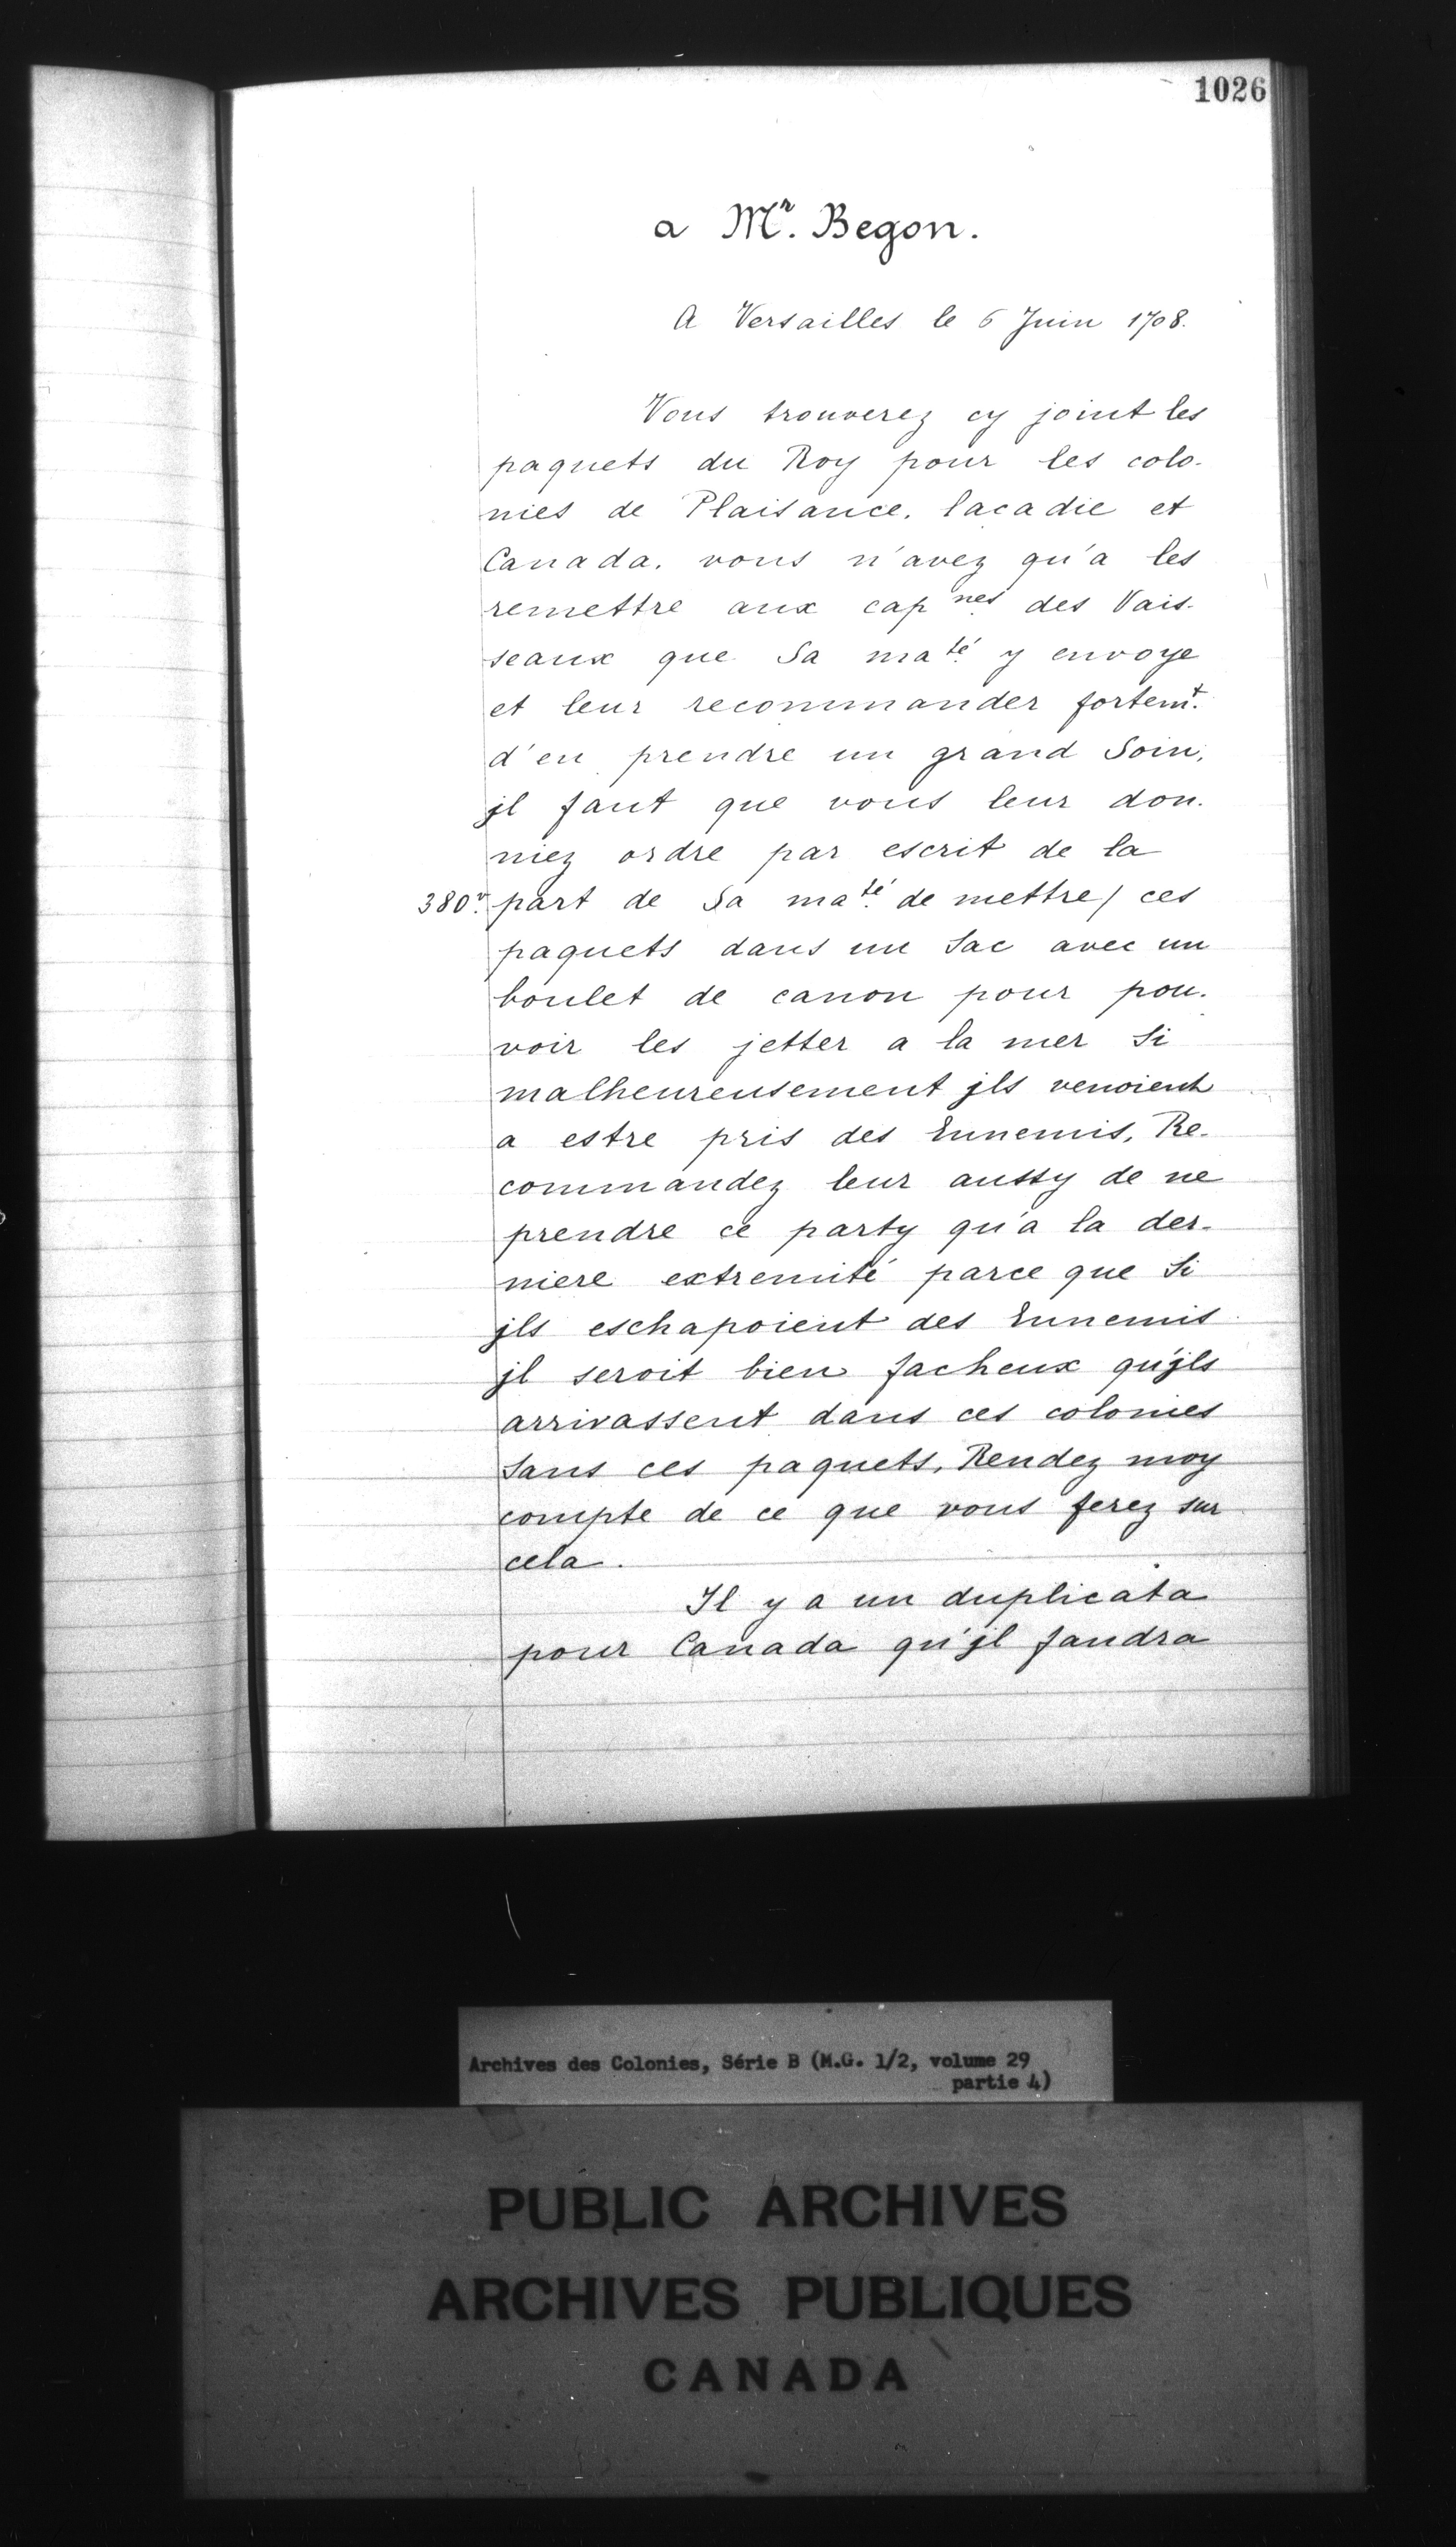 1026
a Mr. Begon.
A Versailles le 6 Juin 1708.
Vous trouverez cy joint les
paquets du Roy pour les colo-
nies de Plaisance. lacadie et
Canada. vous n'avez qu'a les
remettre aux cap nes des Vais-
seaux que Sa maté. y envoye
et leur recommander fortemt.
d'en prendre un grand Soin,
jl faut que vous leur don-
niez ordre par escrit de la
380v. part de Sa maté. de mettre / ces
paquets dans un Sac avec un
boulet de canon pour pou-
voir les jetter a la mer Si
malheureusement jls venoient
a estre pris des Ennemis, Re-
commandez leur aussy de ne
prendre ce party qu'a la der-
niere extremité parce que Si
jls eschapoient des Ennemis
jl seroit bien facheux qu'jls
arrivassent dans ces colonies
Sans ces paquets, Rendez moy
compte de ce que vous ferez sur
cela.
Il y a un duplicata
pour Canada qu'jl faudra
Archives des Colonies, Série B (M.G. 1/2, volume 29
partie 4)
PUBLIC ARCHIVES
ARCHIVES PUBLIQUES
CANADA